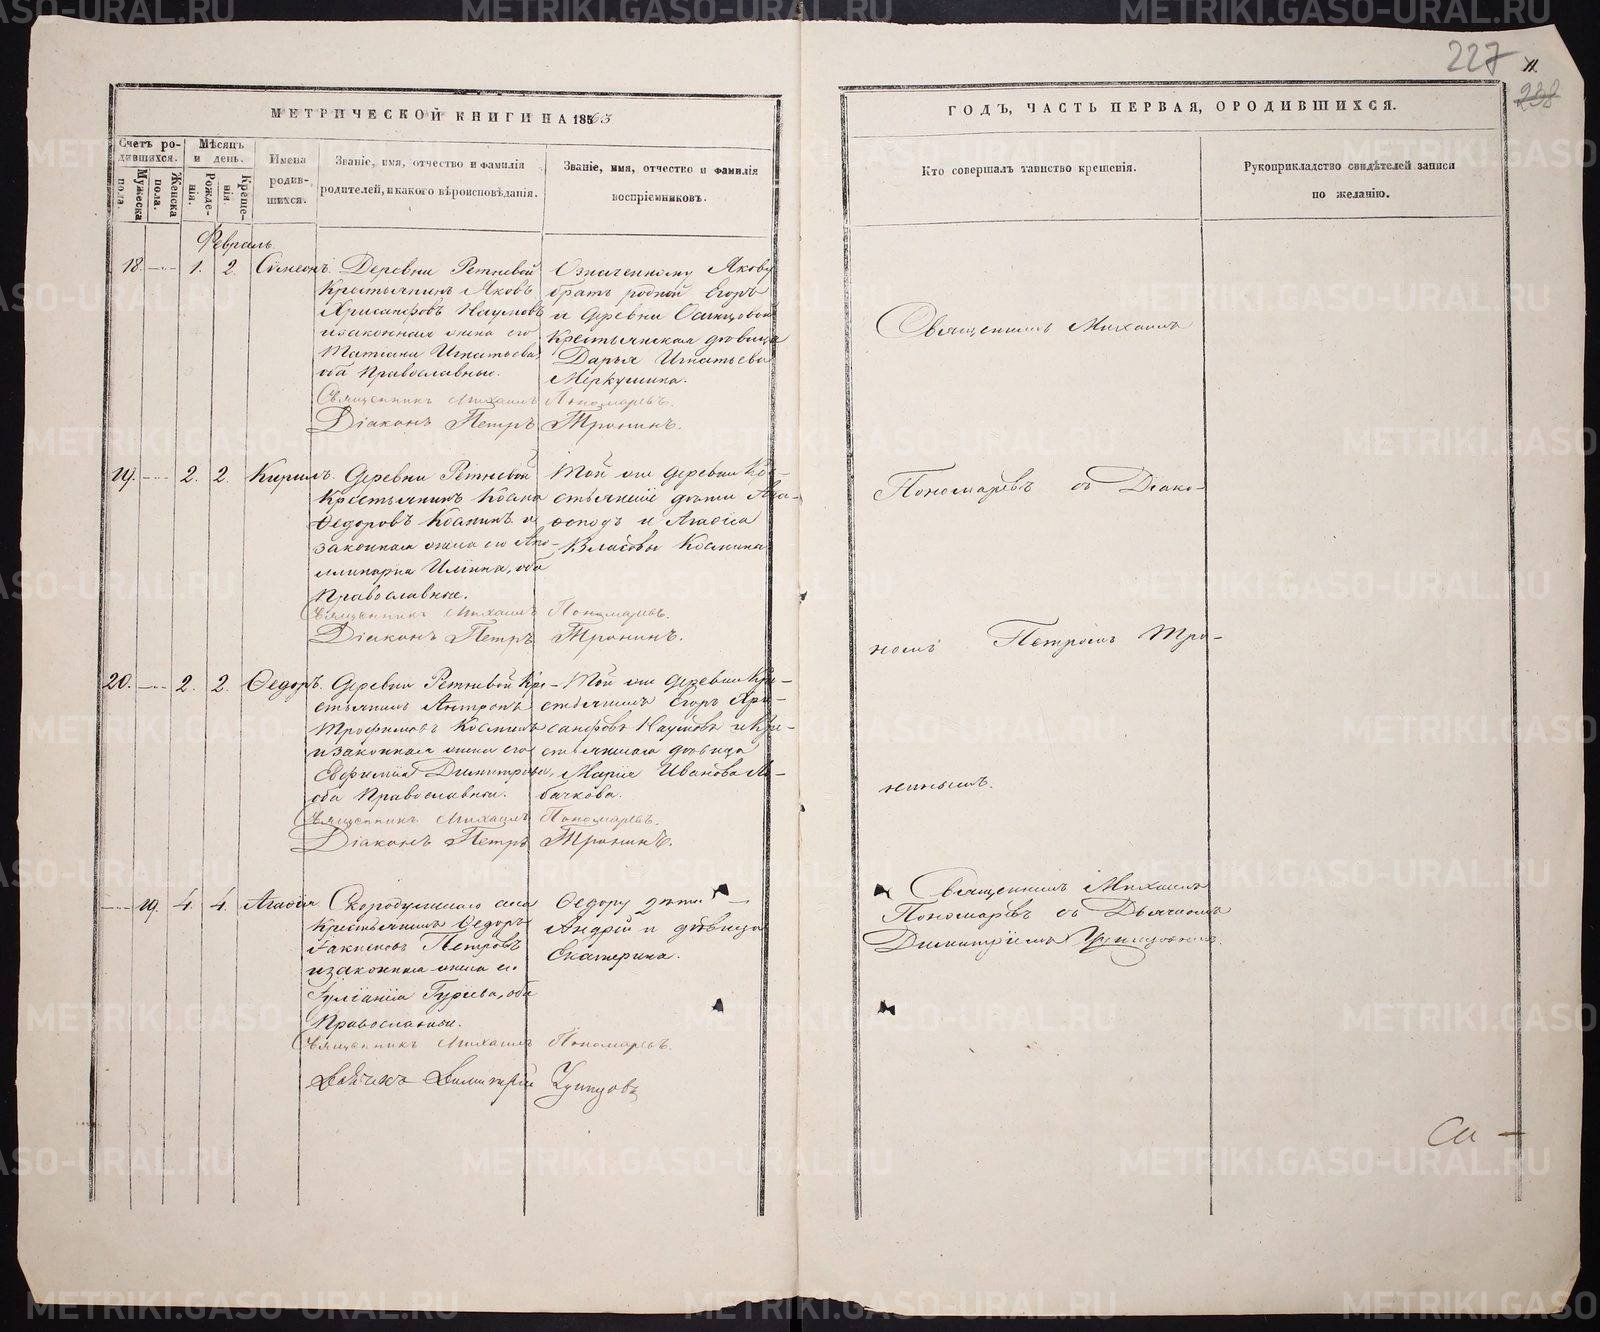 227
11
238
МЕТРИЧЕСКОЙ КНИГИ НА 1863
ГОДЪ, ЧАСТЬ ПЕРВАЯ, ОРОДИВШИХСЯ.
Счетъ родившихся.
Мужеска пола.
Женска пола.
Мѣсяцъ и день.
Рожденія.
Крещенія.
Имена родившихся.
Званіе, имя, отчество и фамилія
родителей, и какого вѣроисповѣданія.
Званіе, имя, отчество и фамилія
воспріемниковъ.
Кто совершалъ таинство крещенія.
Рукоприкладство свидѣтелей записи
по желанію.
Февраль
18. 1. 2. Симеонъ.
Деревни Ретневой
Крестьянинъ Яковъ
Хрисанфовъ Наумовъ
и законная жена его
Татіана Игнатьева
оба Православные.
Означенному Якову
братъ родной Егоръ
и деревни
крестьянская дѣвица
Дарья Игнатьева
Меркушина.
Священникъ Михаилъ Пономаревъ.
Діаконъ Петръ Тронинъ.
Священникъ Михаилъ
19. 2. 2. Кирилъ.
Деревни Ретневой
Крестьянинъ Косма
Ѳедоровъ Косминъ и
законная жена его Апо-
линарія Ильина, оба
Православные.
Той же деревни Кре-
стьянскіе дѣти
и Агаѳія
Власовы Космины
Священникъ Михаилъ Пономаревъ.
Діаконъ Петръ Тронинъ.
Пономаревъ съ Діако-
20. 2. 2. Ѳедоръ.
Деревни Ретневой Кре-
стьянинъ Антропъ
Трофимовъ Косминъ
и законная жена его
Евфимія Димитріева,
оба Православные.
Той же деревни Кре-
стьянинъ Егоръ Хри-
санфовъ Наумовъ и Кре-
стьянская дѣвица
Марія Иванова Ло-
бачкова.
Священникъ Михаилъ Пономаревъ.
Діаконъ Петръ Тронинъ.
номъ Петромъ Тро-
нинымъ.
19. 4. 4. Агаѳія
Скородумскаго села
Крестьянинъ Ѳедоръ
Іакимовъ Петровъ
и законная жена его
Іуліанія Гурьева, оба
Православные.
Ѳедору дѣти
Андрей и дѣвица
Екатерина.
Священникъ Михаилъ Пономаревъ.
Дьячекъ Димитрій
Священникъ Михаилъ
Пономаревъ съ Дьячкомъ
Димитріемъ
METRIKI.GASO-URAL.RU